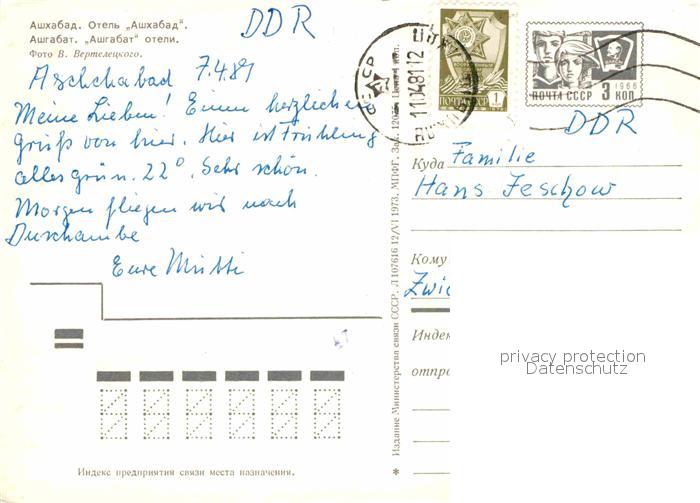 Ашхабад. Отель „Ашхабад“.
Ашгабат. „Ашгабат“ отели.
Фото В. Вертелецкого.
DDR
Aschchabad 7.4.81
Meine Lieben! Einen herzlichen
Gruß von hier. Hier ist Frühling
alles grün. 22°. Sehr schön.
Morgen fliegen wir nach
Duschambe
Eure Mutti
СССР
11.04.81.12
ПОЧТА СССР 1
ПОЧТА СССР 3 КОП
1966
DDR
Куда Familie
Hans Jeschow
Кому
Zwi
Индек
отпра
privacy protection
Datenschutz
Индекс предприятия связи места назначения.
* Издание Министерства связи СССР. Л 107616 12/VI 1973. МПФГ. Зак.